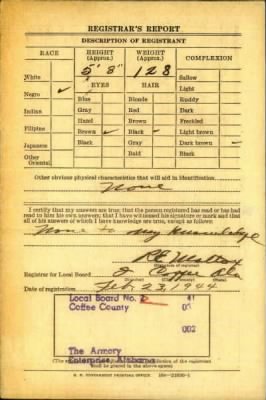 REGISTRAR'S REPORT
DESCRIPTION OF REGISTRANT
RACE HEIGHT (Approx.) WEIGHT (Approx.) COMPLEXION
White 5' 8" 128 Sallow
EYES HAIR Light
Negro ✓ Blue Blonde Ruddy
Indian Gray Red Dark
Hazel Brown Freckled
Filipino Brown ✓ Black ✓ Light brown
Japanese Black Gray Dark brown ✓
Other Oriental Bald Black
Other obvious physical characteristics that will aid in identification
None
I certify that my answers are true; that the person registered has read or has had
read to him his own answers; that I have witnessed his signature or mark and that
all of his answers of which I have knowledge are true, except as follows:
None to my Knowledge
R E Mattox
(Signature of registrar)
Registrar for Local Board 2 Coffee Ala
Date of registration Feb 23, 1944
Local Board No. 2 41
Coffee County
002
The Armory
Enterprise, Alabama
U. S. GOVERNMENT PRINTING OFFICE